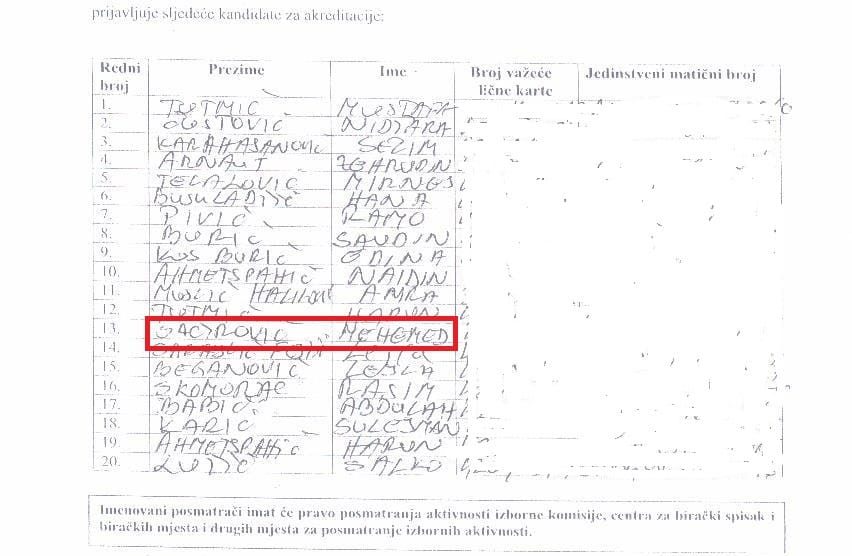 prijavljuje sljedeće kandidate za akreditacije:
Redni broj Prezime Ime Broj važeće lične karte Jedinstveni matični broj
1. TUTMIĆ MUSTAFA
2. NIDŽARA
3. KARAHASANOVIĆ SEZIM
4. ARNAUT
5. TELALOVIĆ MIRNES
6. BUSULADŽIĆ HANA
7. PIVIĆ RAMO
8. BURIĆ SAUDIN
9. KOS BURIĆ EDINA
10. AHMETSPAHIĆ NAIDIN
11. MUSLIĆ HALILOVIĆ AMRA
12. TUTMIĆ HARUN
13. GAČIROVIĆ MEHEMED
14.
15. BEGANOVIĆ LEJLA
16. SKOMORAC RASIM
17. BABIĆ ABDULAH
18. KARIĆ SULEJMAN
19. AHMETSPAHIĆ HARUN
20. SALKO
Imenovani posmatrači imat će pravo posmatranja aktivnosti izborne komisije, centra za birački spisak i
biračkih mjesta i drugih mjesta za posmatranje izbornih aktivnosti.